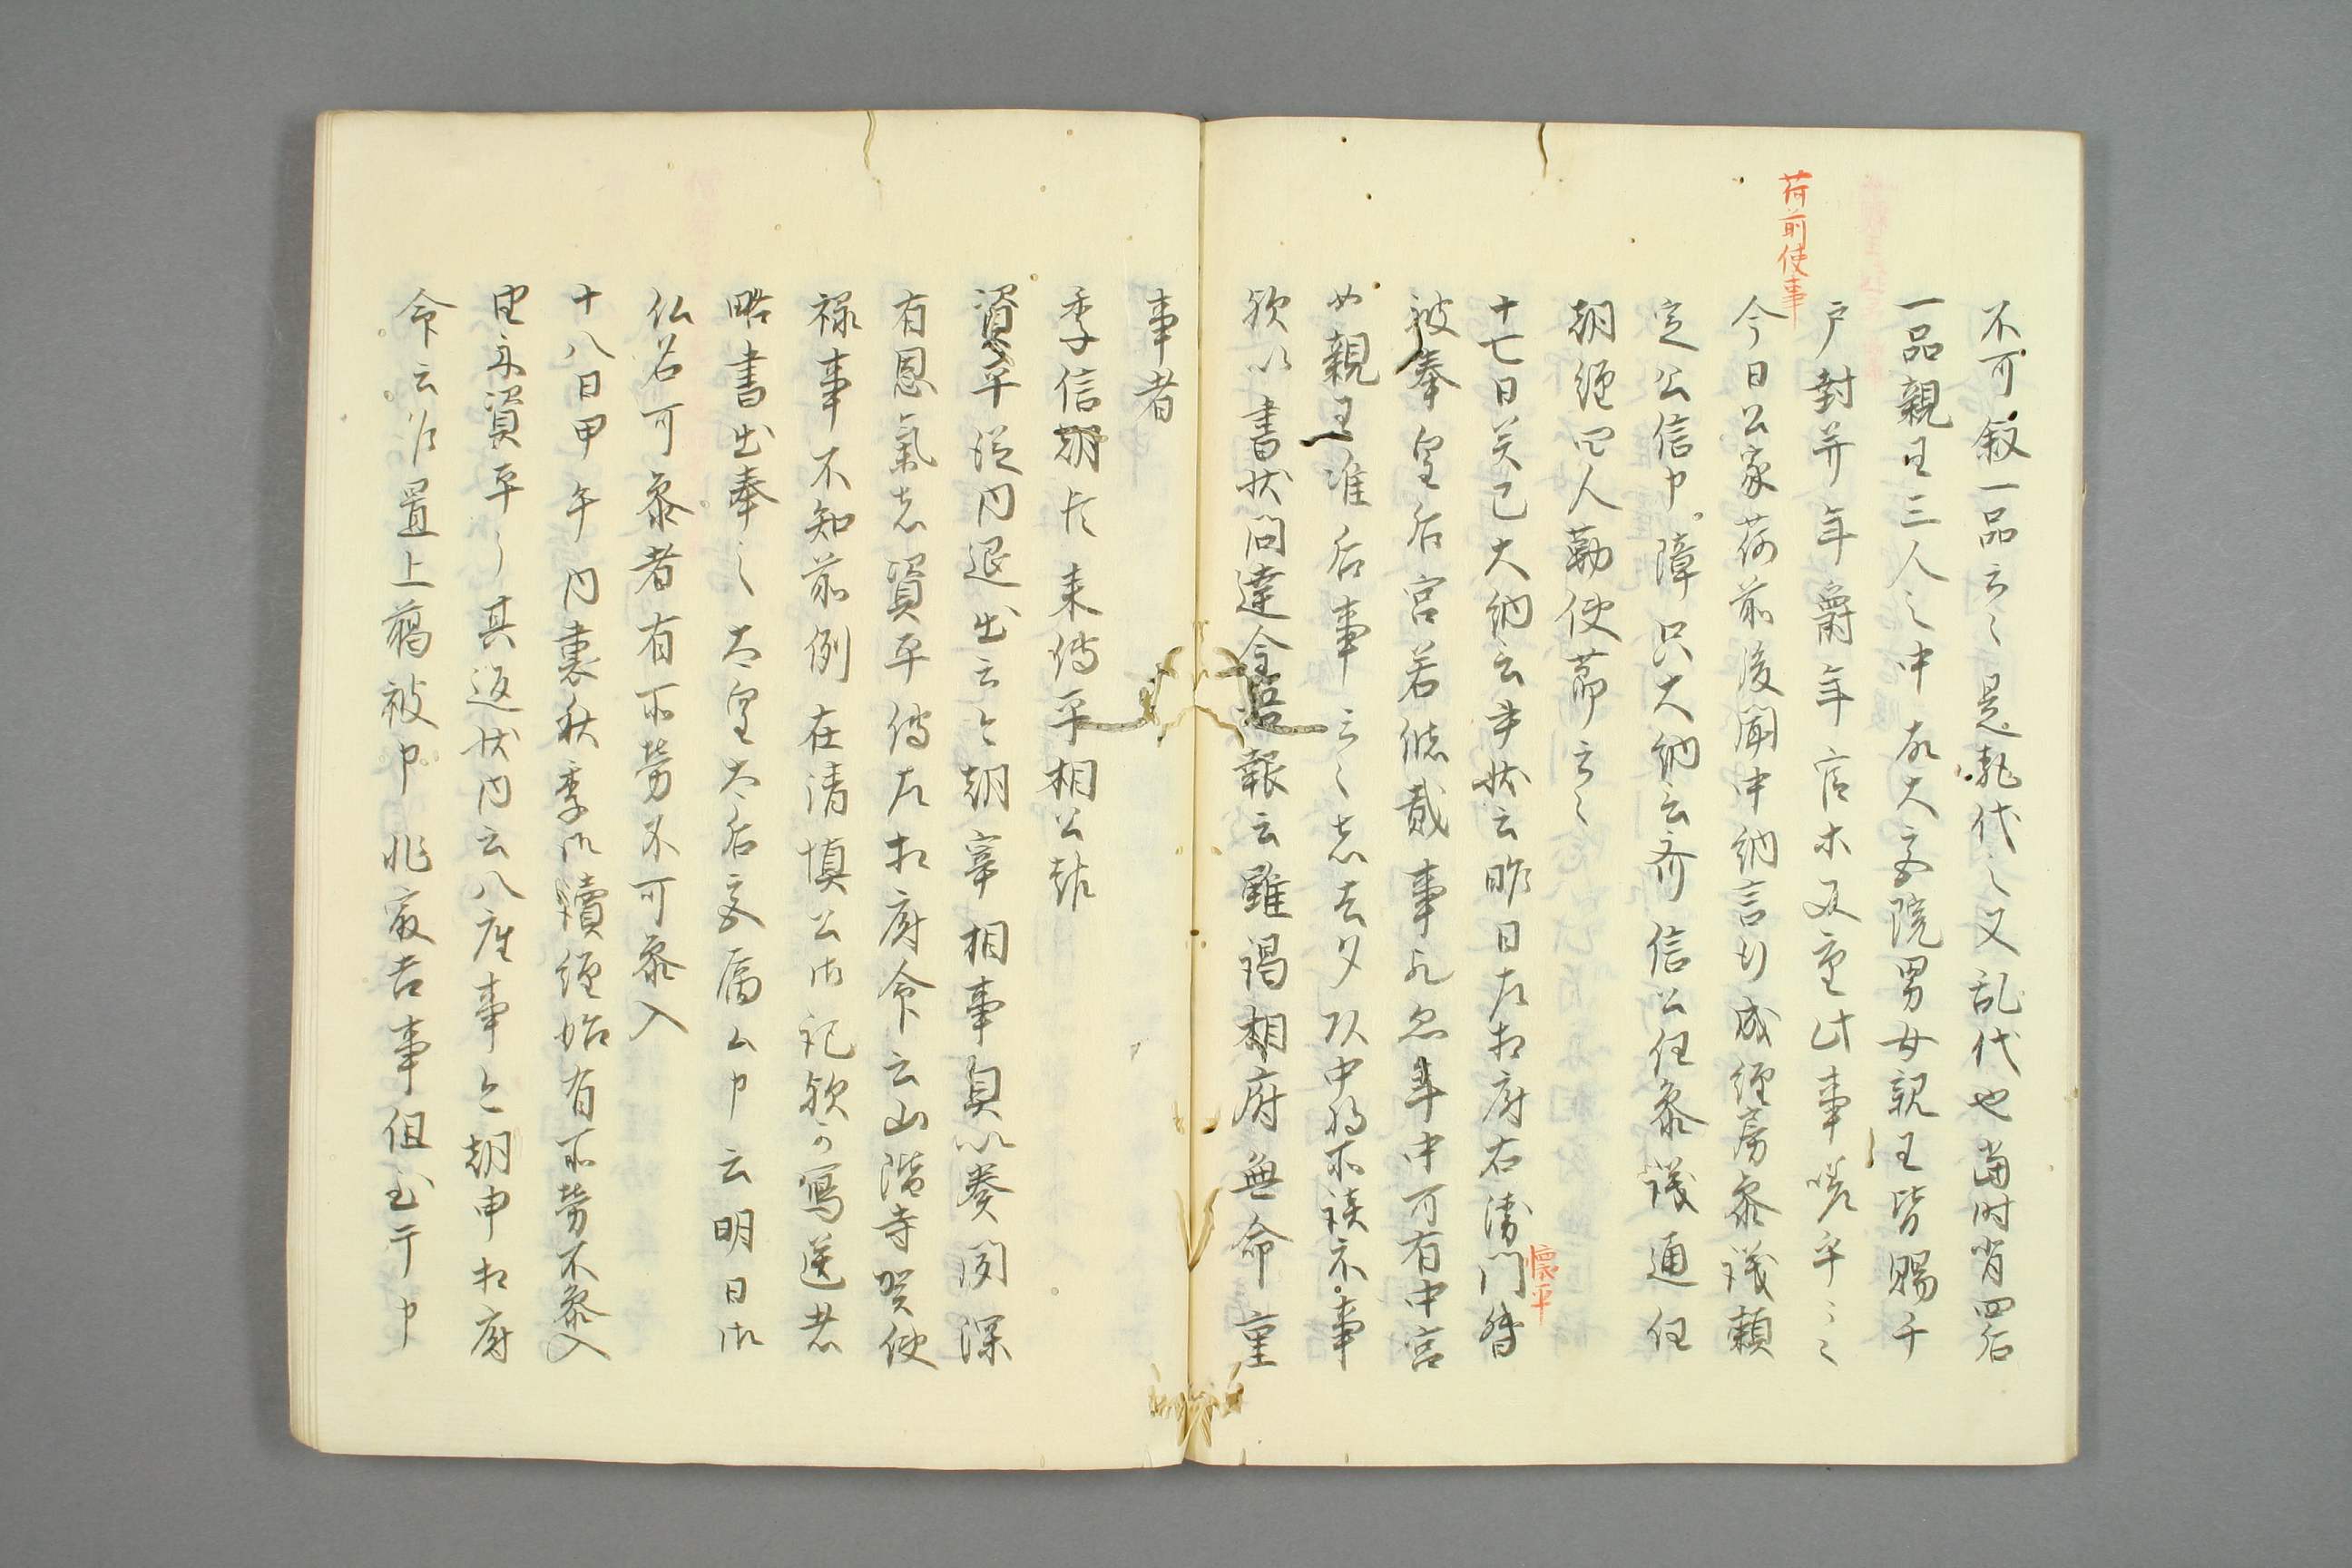 不可叙一品云々是乱代之又乱代也当時皆四后
一品親王三人之中故大斎院男女親王皆賜千
戸封并年爵年官木又重此事嗟乎々々
荷前使事
今日公家荷前後聞中納言行成経房参議頼
定公信申障只大納云斉信公任参議通任
朝経四人勤使節云々
十七日癸巳大納云書状云昨日左相府右衛門督
懐平
被奉皇后宮若催貳事也忽年中可有中宮
女親王准后事云々者去夕以中将示談不事
欲以書状問達金吾報云雖謁相府無命重
事者
季信朝臣来伝平相公詰
資平従内退出云々朝宰相事負以奏聞深
有恩気者資平伝左相府命云山階寺賀使
禄事不知前例在清慎公御記欲可写送者
略書出奉之太皇太后宮属公申云明日御
仏名可参者有所労不可参入
十八日甲午内裏秋季御読経始有所労不参入
申案資平之其返状内云八座事今朝申相府
命云以置上臈被申非最吉事但至于申